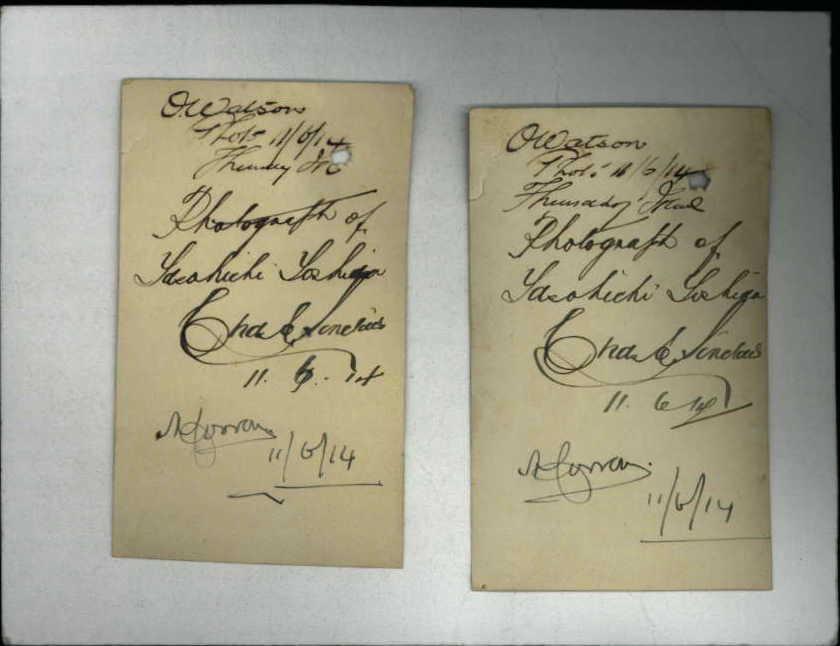 O. Watson
Phot. 11/6/14
Photograph of
Yasohichi Yoshiga
Chas E Sinclair
11. 6. 14
11/6/14
O Watson
Phot. 11/6/14
Thursday
Photograph of
Yasohichi Yoshiga
Chas E Sinclair
11. 6 14
11/6/14